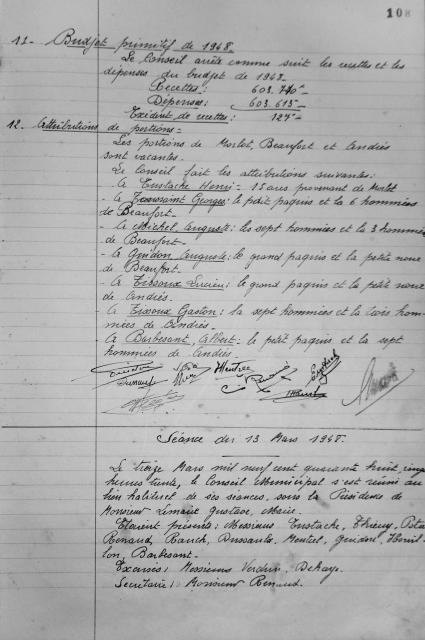 108
11- Budget primitif de 1948-
Le Conseil arrête comme suit les recettes et les
dépenses du budget de 1948.
Recettes: 603.740-
Dépenses: 603.615-
Excédent de recettes: 125-
12. Attributions de portions-
Les portions de Morlot, Beaufort et Andrés
sont vacantes.
Le Conseil fait les attributions suivantes:
- A Eustache Henri- 15 ares provenant de Morlot
- A Toussaint Georges: le petit paquis et la 6 hommées
de Beaufort-
- A Michel Auguste: les sept hommées et la 3 hommées
de Beaufort-
- A Guidon Auguste: le grand paquis et la petite noue
de Beaufort.
- A Lucien: le grand paquis et la petite noue
de Andrés.
- A Gaston: la sept hommées et la trois hom-
mées de Andrés-
A Barbesant Albert: le petit paquis et la sept
hommées de Andrés-
Séance du 13 Mars 1948-
Le treize Mars mil neuf cent quarante huit, cinq
heures trente, le Conseil Municipal s'est réuni au
lieu habituel de ses séances, sous la Présidence de
Monsieur Lemaire Gustave, Maire.
Etaient présents: Messieurs Eustache, Thierry,
Renaud, Rauch, Dussaute, Guidon,
lon, Barbesant-
Excusés: Messieurs Verdun, Dehaye.
Secrétaire: Monsieur Renaud.